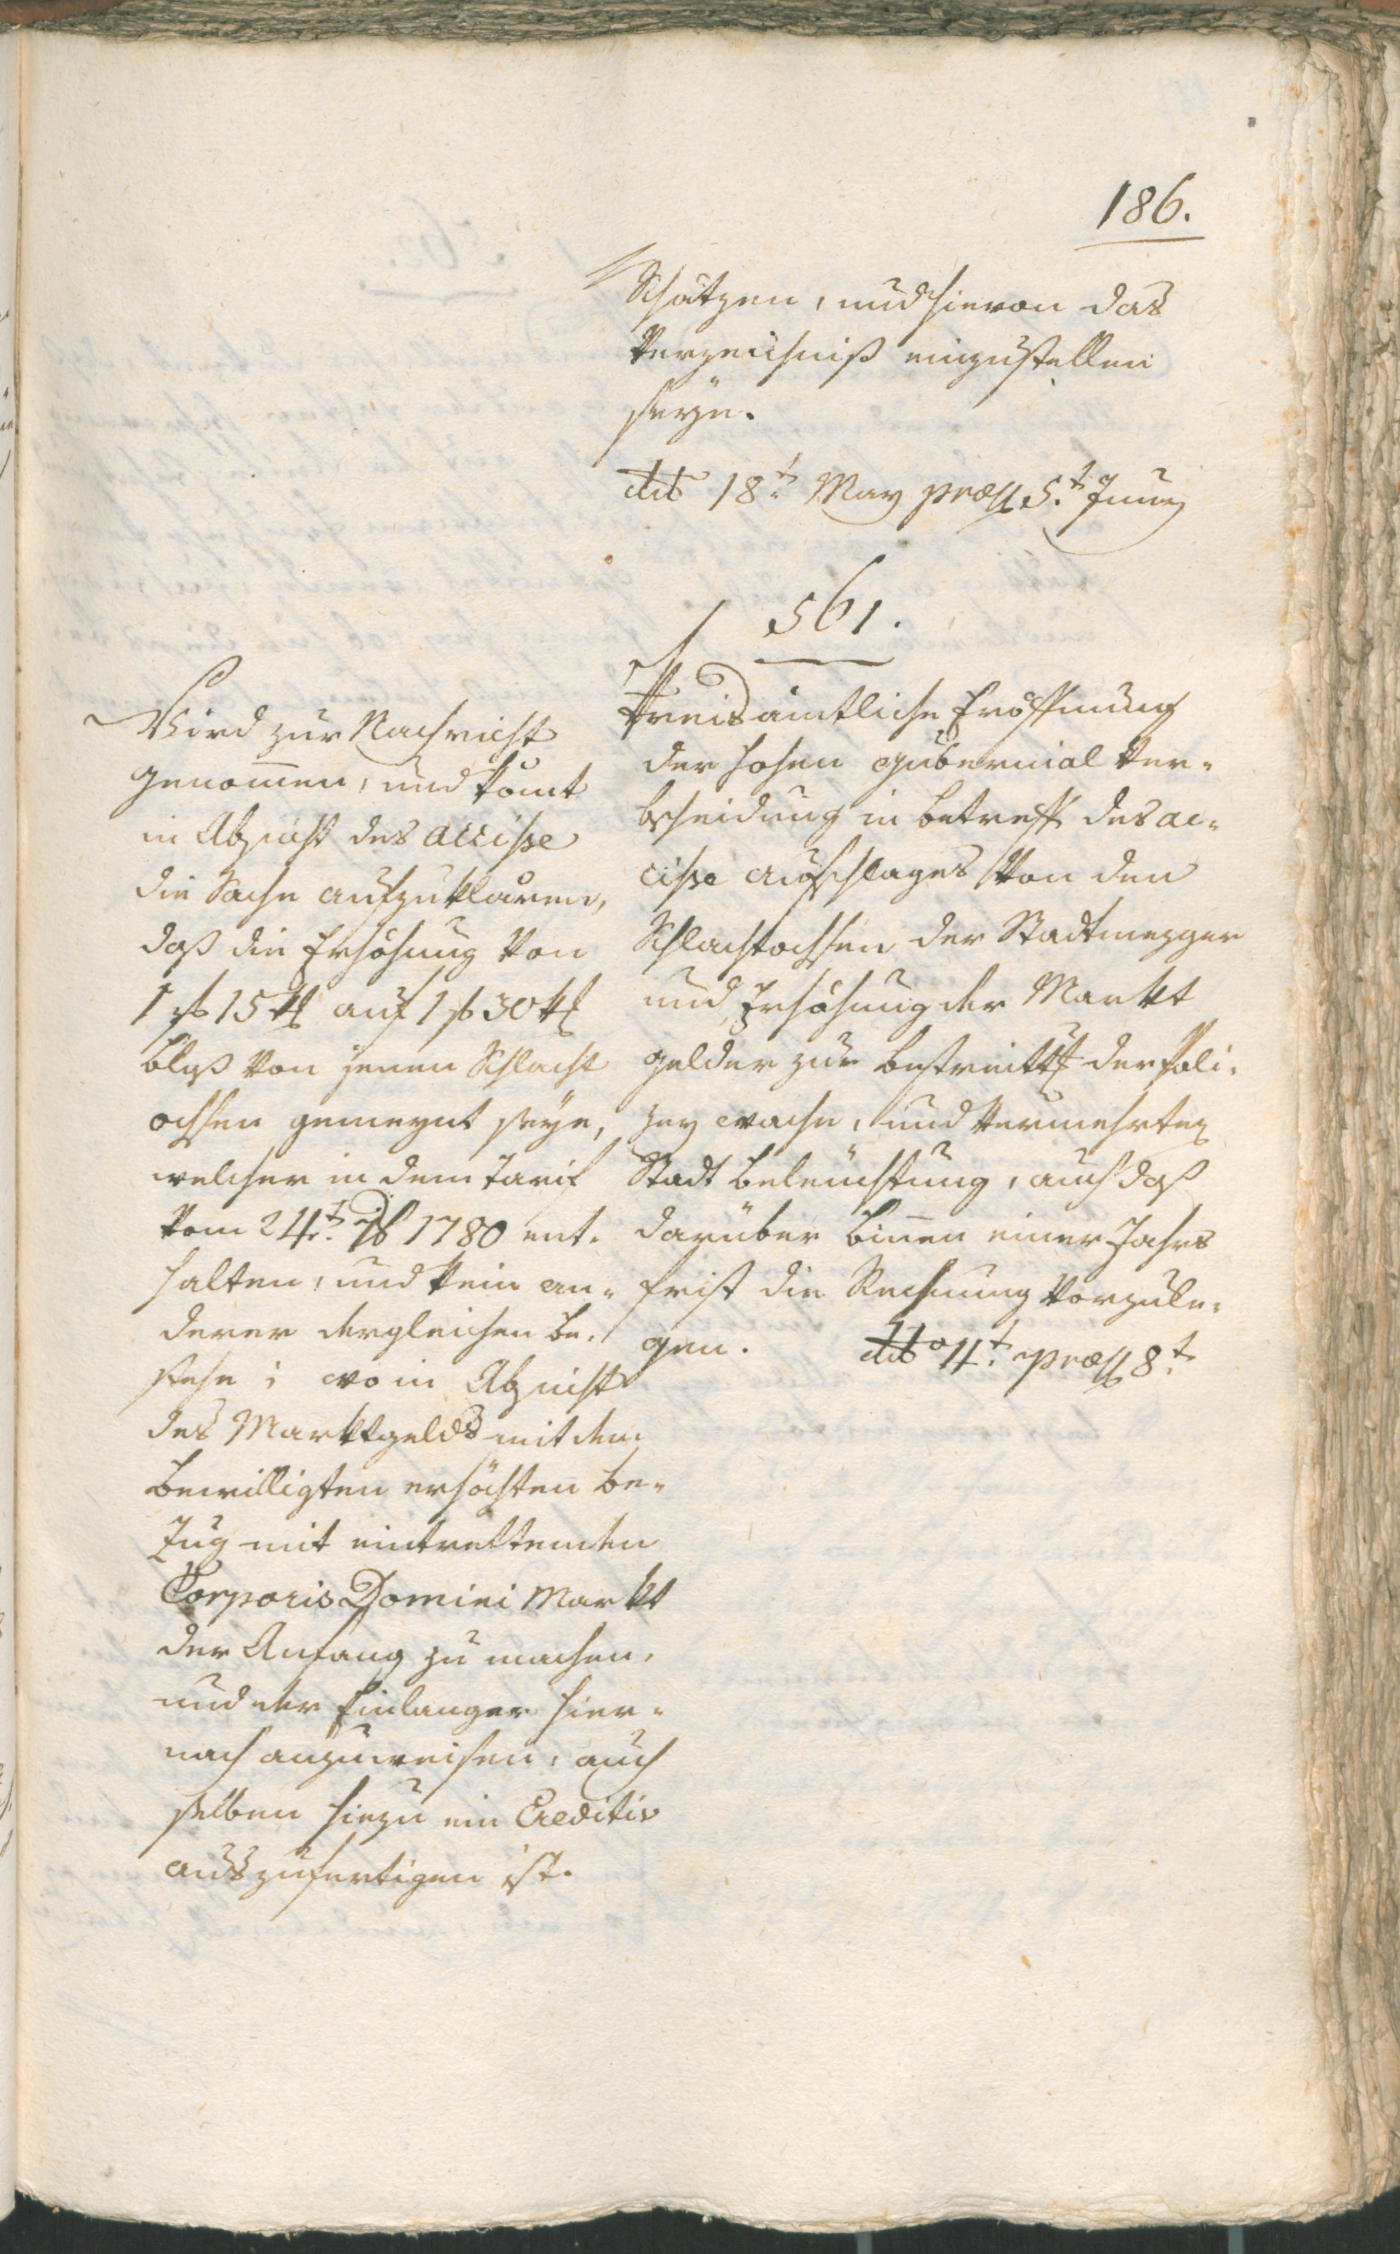 186.
Schätzen, und hievon das
Verzeichniß einzustellen
seÿe.
ddo 18t. May præs 5t. Junÿ
561.
Kreisamtliche Eröffnung
der hohen gubernial Ver-
bscheidung in betreff des ac-
cisse aufschlages von den
Schlachtochsen der Stadtmezger
und Erhöhung der Markt
gelder zur bestreitt der Poli-
zey wache, und vermehrten
Stadt beleüchtung, auch daß
darüber binnen einer Jahrs
frist die Rechnung vorzule-
gen. ddo 4t. præs 8t
Wird zur Nachricht
genommen, und komt
in Absicht des accisse
die Sache aufzuklären,
daß die Erhöhung von
1 f 15 k auf 1 f 30 k
blos von jenen Schlacht
ochsen gemeynt seÿe,
welcher in dem Tarif
vom 24t. 1780 ent-
halten, und kein an-
derer dergleichen be-
stehe; wo in Absicht
des Marktgelds mit dem
bewilligten erhöhten be-
zug mit eintrettenden
Corporis Domini Markt
der Anfang zu machen,
und der Einlanger hier-
nach anzuweisen, auch
selben hiezu ein Creditiv
auszufertigen ist.